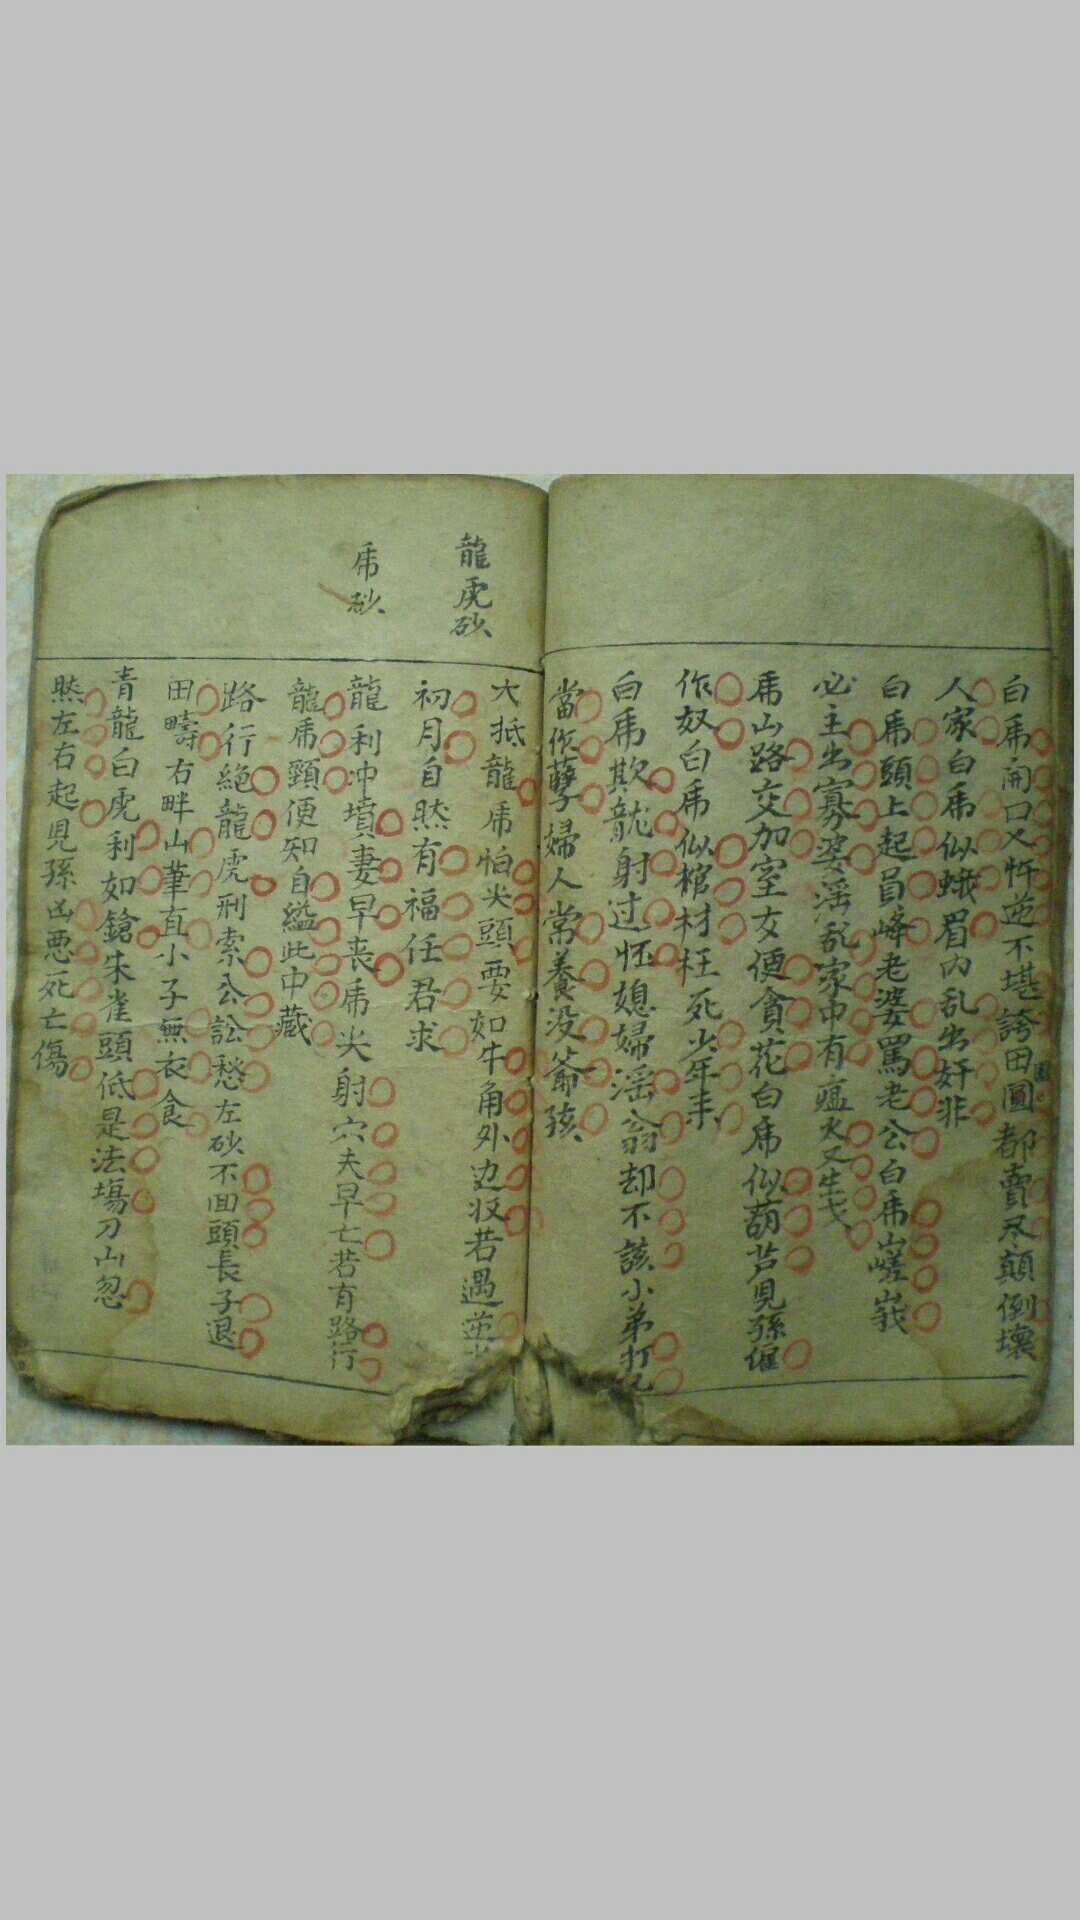 白虎開口又忤逆不堪誇田園都賣尽顛倒壞
人家白虎似蛾眉內乱出奸非
白虎頭上起員峰老婆罵老公白虎山嵯峩
必主出寡婆淫乱家中有瘟火又生
虎山路交加室女便貪花白虎似葫芦児孫僱
作奴白虎似棺材枉死少年来
白虎欺龍射过怌媳婦淫翁却不該小弟打兄
當作孽婦人常養没爺孩
龍虎砂
大抵龍虎怕尖頭要如牛角外边収若遇逆
初月自然有福任君求
虎砂
龍利冲墳妻早丧虎尖射穴夫早亡若有路行
龍虎頸便知自縊此中藏
路行絶龍虎刑索公訟愁左砂不回頭長子退
田疇右畔山葷直小子無衣食
青龍白虎利如鎗朱雀頭低是法塲刀山忽
然左右起児孫凶悪死亡傷